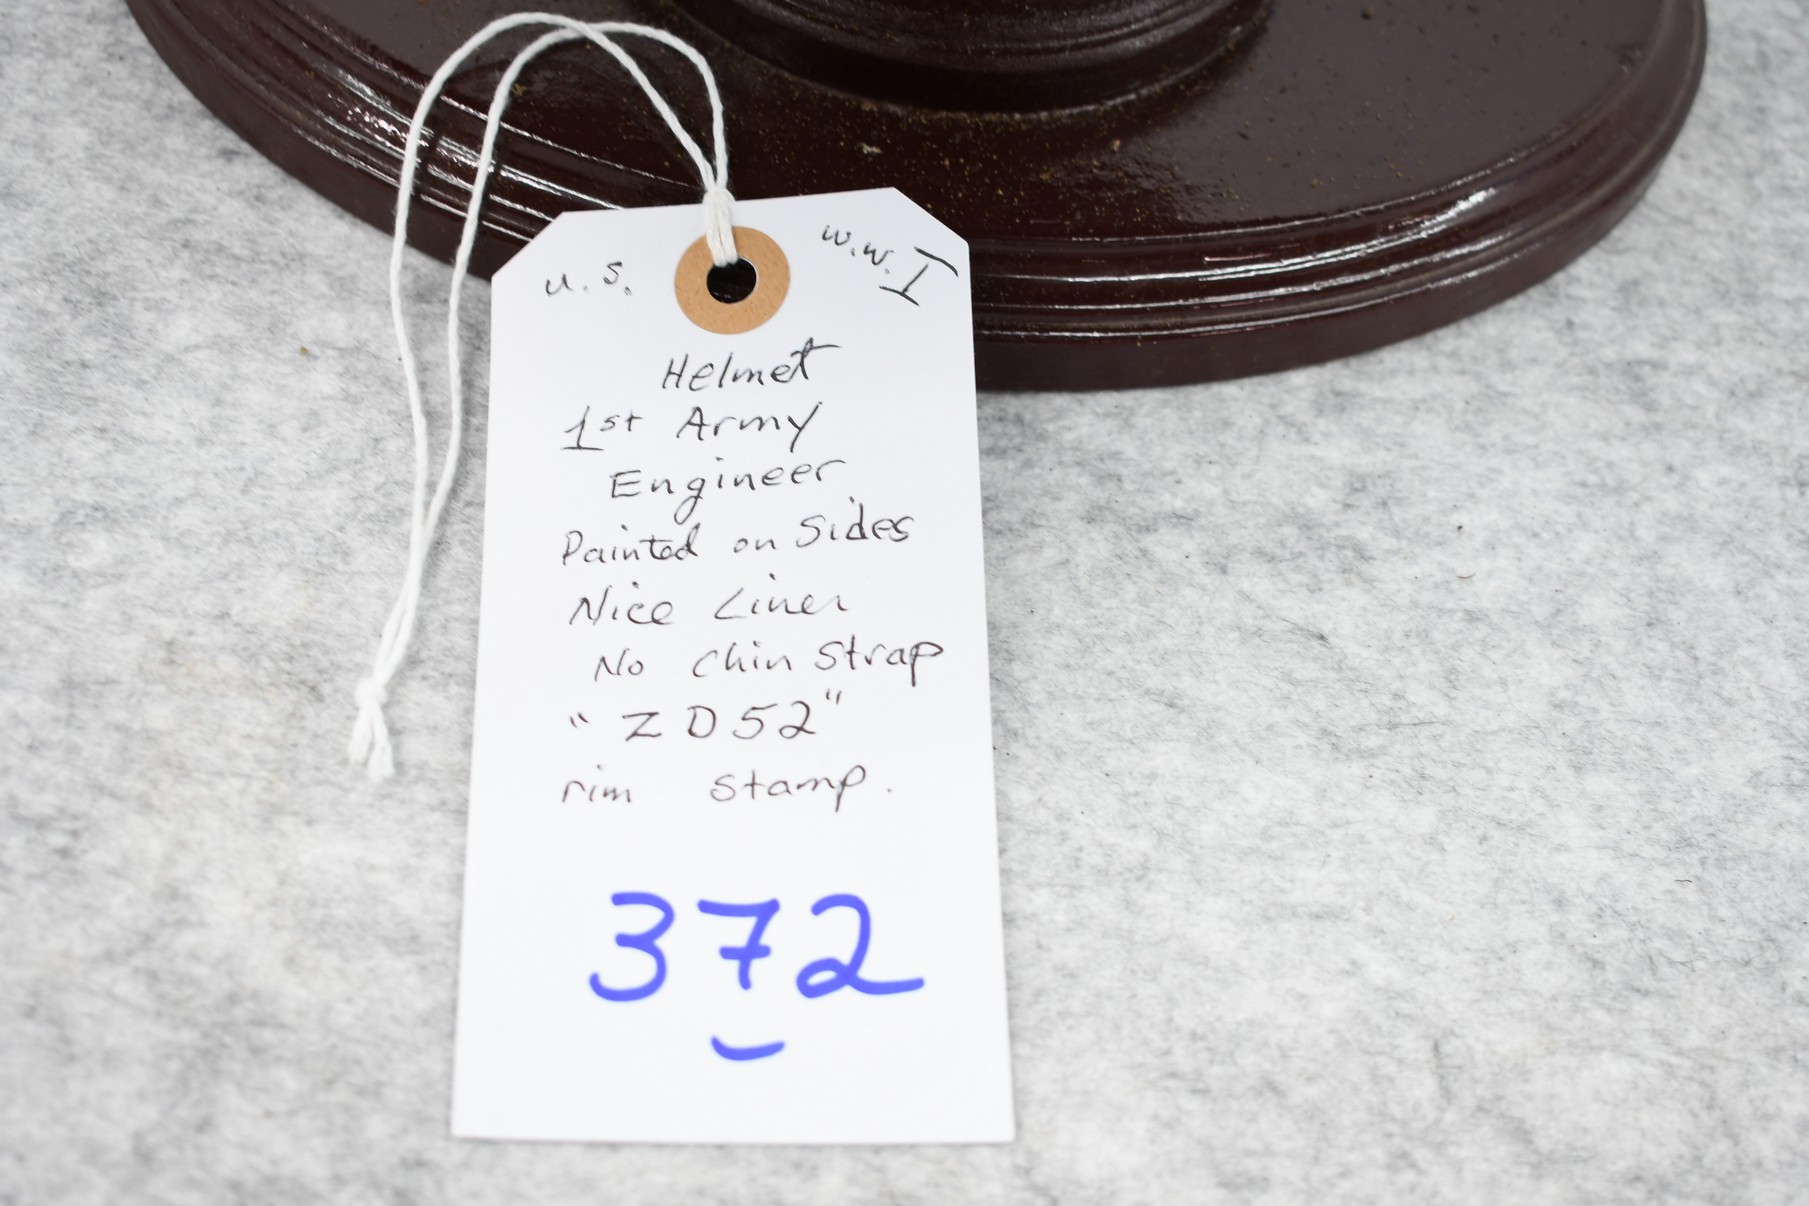 u. s. W.W. I
Helmet
1st Army
Engineer
Painted on Sides
Nice Liner
No Chin Strap
"ZD52"
rim stamp.
372